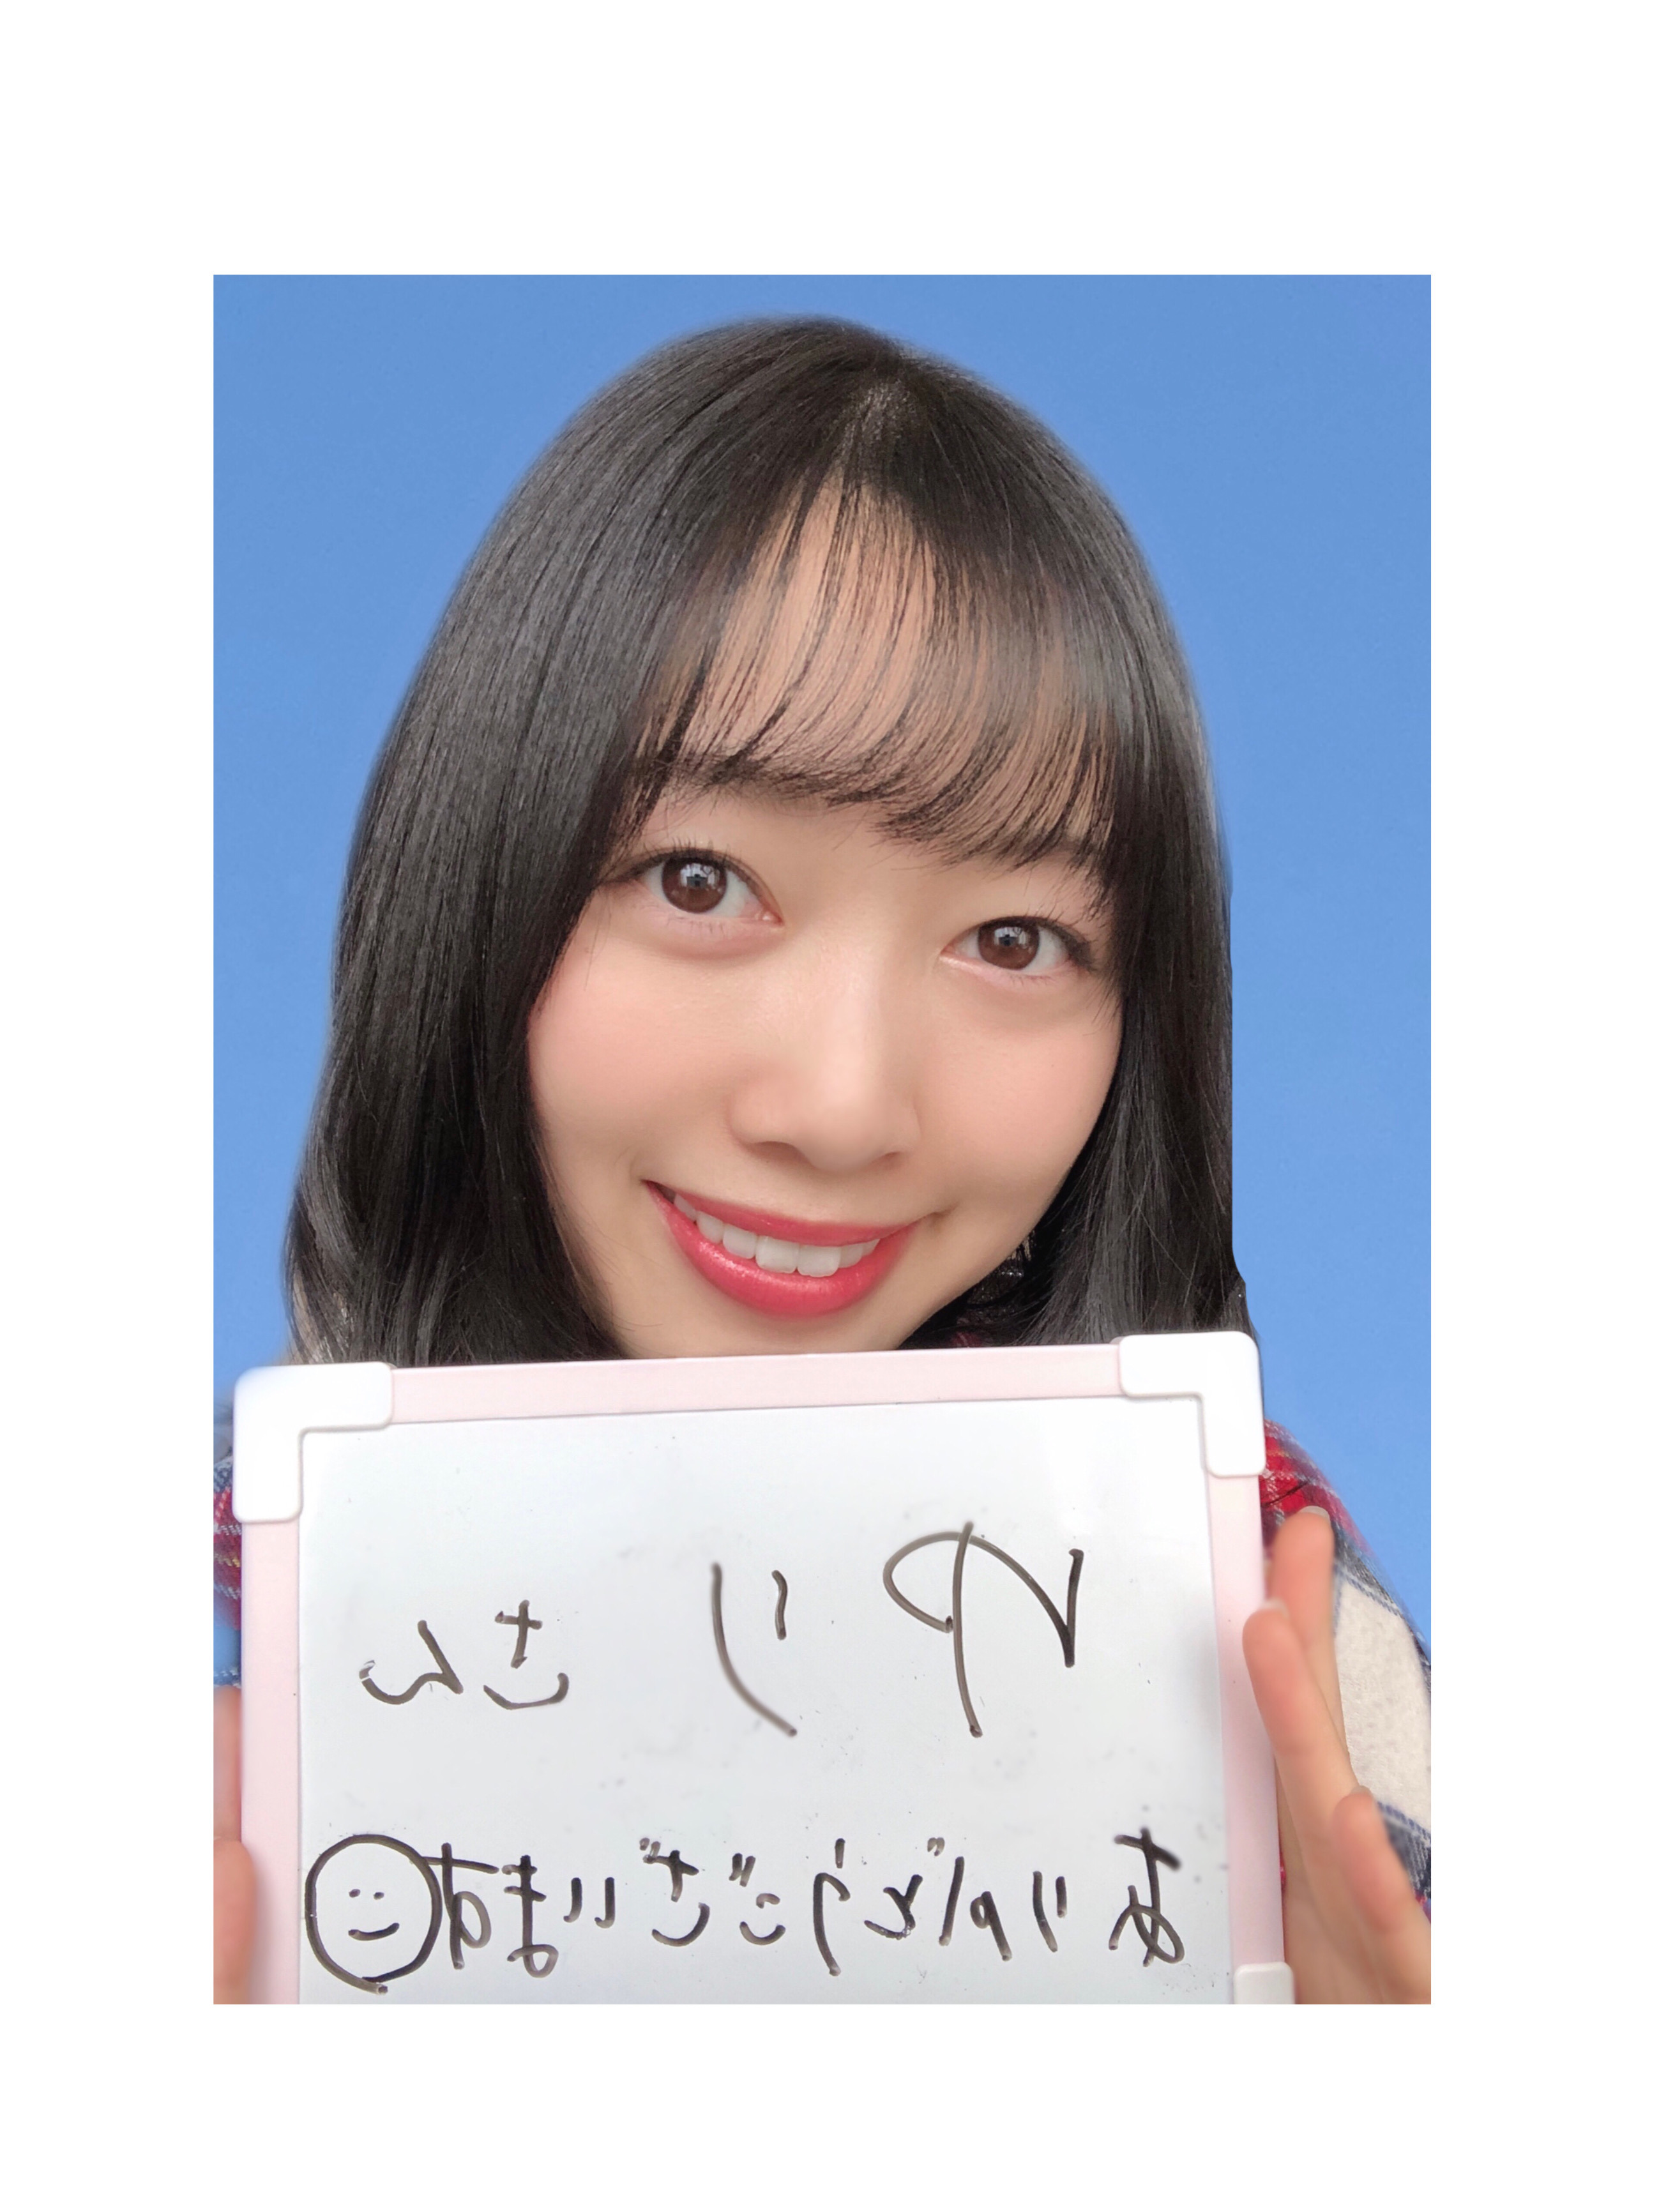 ゆり さん
ありがとうございます